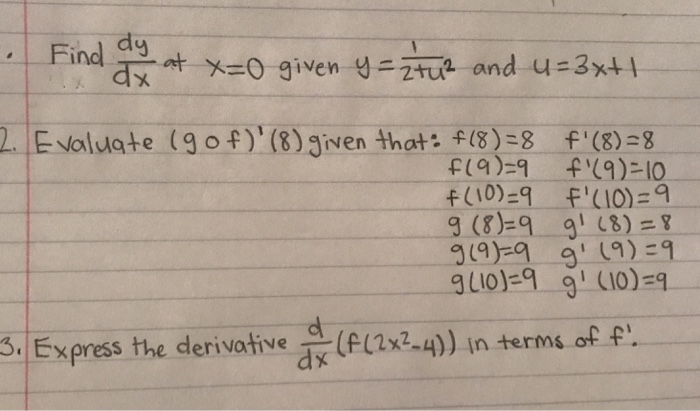 . Find dy/dx at x=0 given y = 1/2+u² and u=3x+1
2. Evaluate (gof)'(8) given that: f(8)=8 f'(8)=8
f(9)=9 f'(9)=10
f(10)=9 f'(10)=9
g(8)=9 g'(8)=8
g(9)=9 g'(9)=9
g(10)=9 g'(10)=9
3. Express the derivative d/dx (f(2x²-4)) in terms of f'.